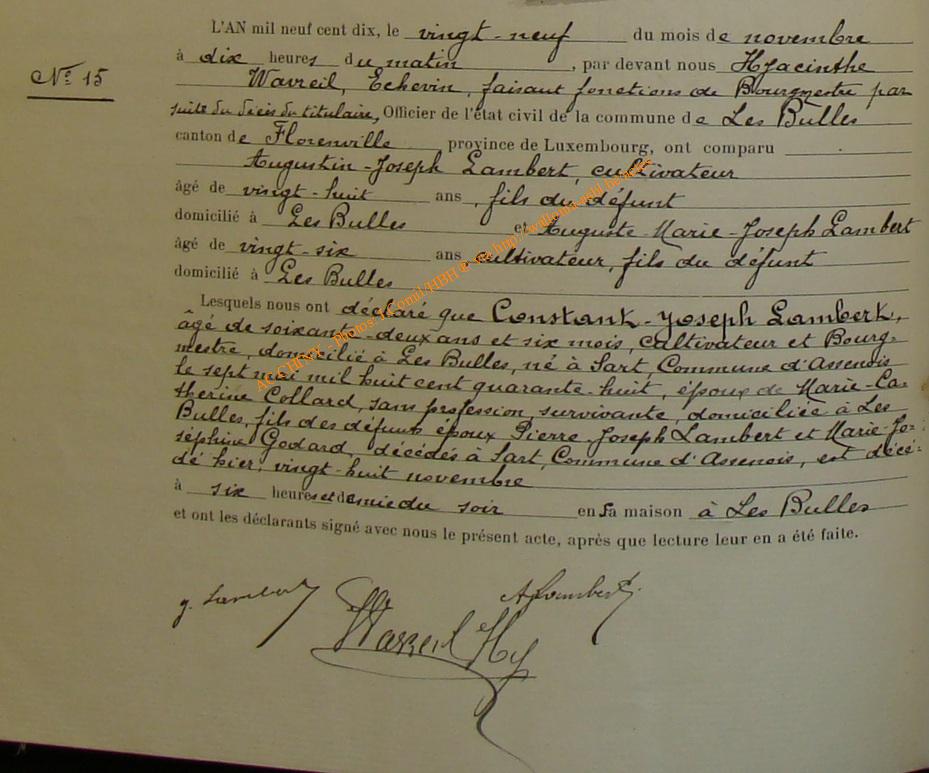 L'AN mil neuf cent dix, le vingt-neuf du mois de novembre
N° 15
à dix heures du matin, par devant nous Hyacinthe
Wavreil, Echevin, faisant fonctions de Bourgmestre par
suite du décès du titulaire, Officier de l'état civil de la commune de Les Bulles
canton de Florenville province de Luxembourg, ont comparu
Augustin-Joseph Lambert, cultivateur
âgé de vingt-huit ans, fils du défunt
domicilié à Les Bulles et Auguste-Marie-Joseph Lambert
âgé de vingt-six ans cultivateur, fils du défunt
domicilié à Les Bulles
Lesquels nous ont déclaré que Constant-Joseph Lambert,
âgé de soixante-deux ans et six mois, cultivateur et Bourg-
mestre, domicilié à Les Bulles, né à Sart, Commune d'Assenois
le sept mai mil huit cent quarante-huit, époux de Marie-Ca-
therine Collard, sans profession, survivante, domiciliée à Les
Bulles, fils des défunts époux Pierre-Joseph Lambert et Marie-Jo-
séphine Godard, décédés à Sart, Commune d'Assenois, est décé-
dé hier, vingt-huit novembre
à six heures et demie du soir en sa maison à Les Bulles
et ont les déclarants signé avec nous le présent acte, après que lecture leur en a été faite.
Lambert
A Lambert
Wavreil Hy